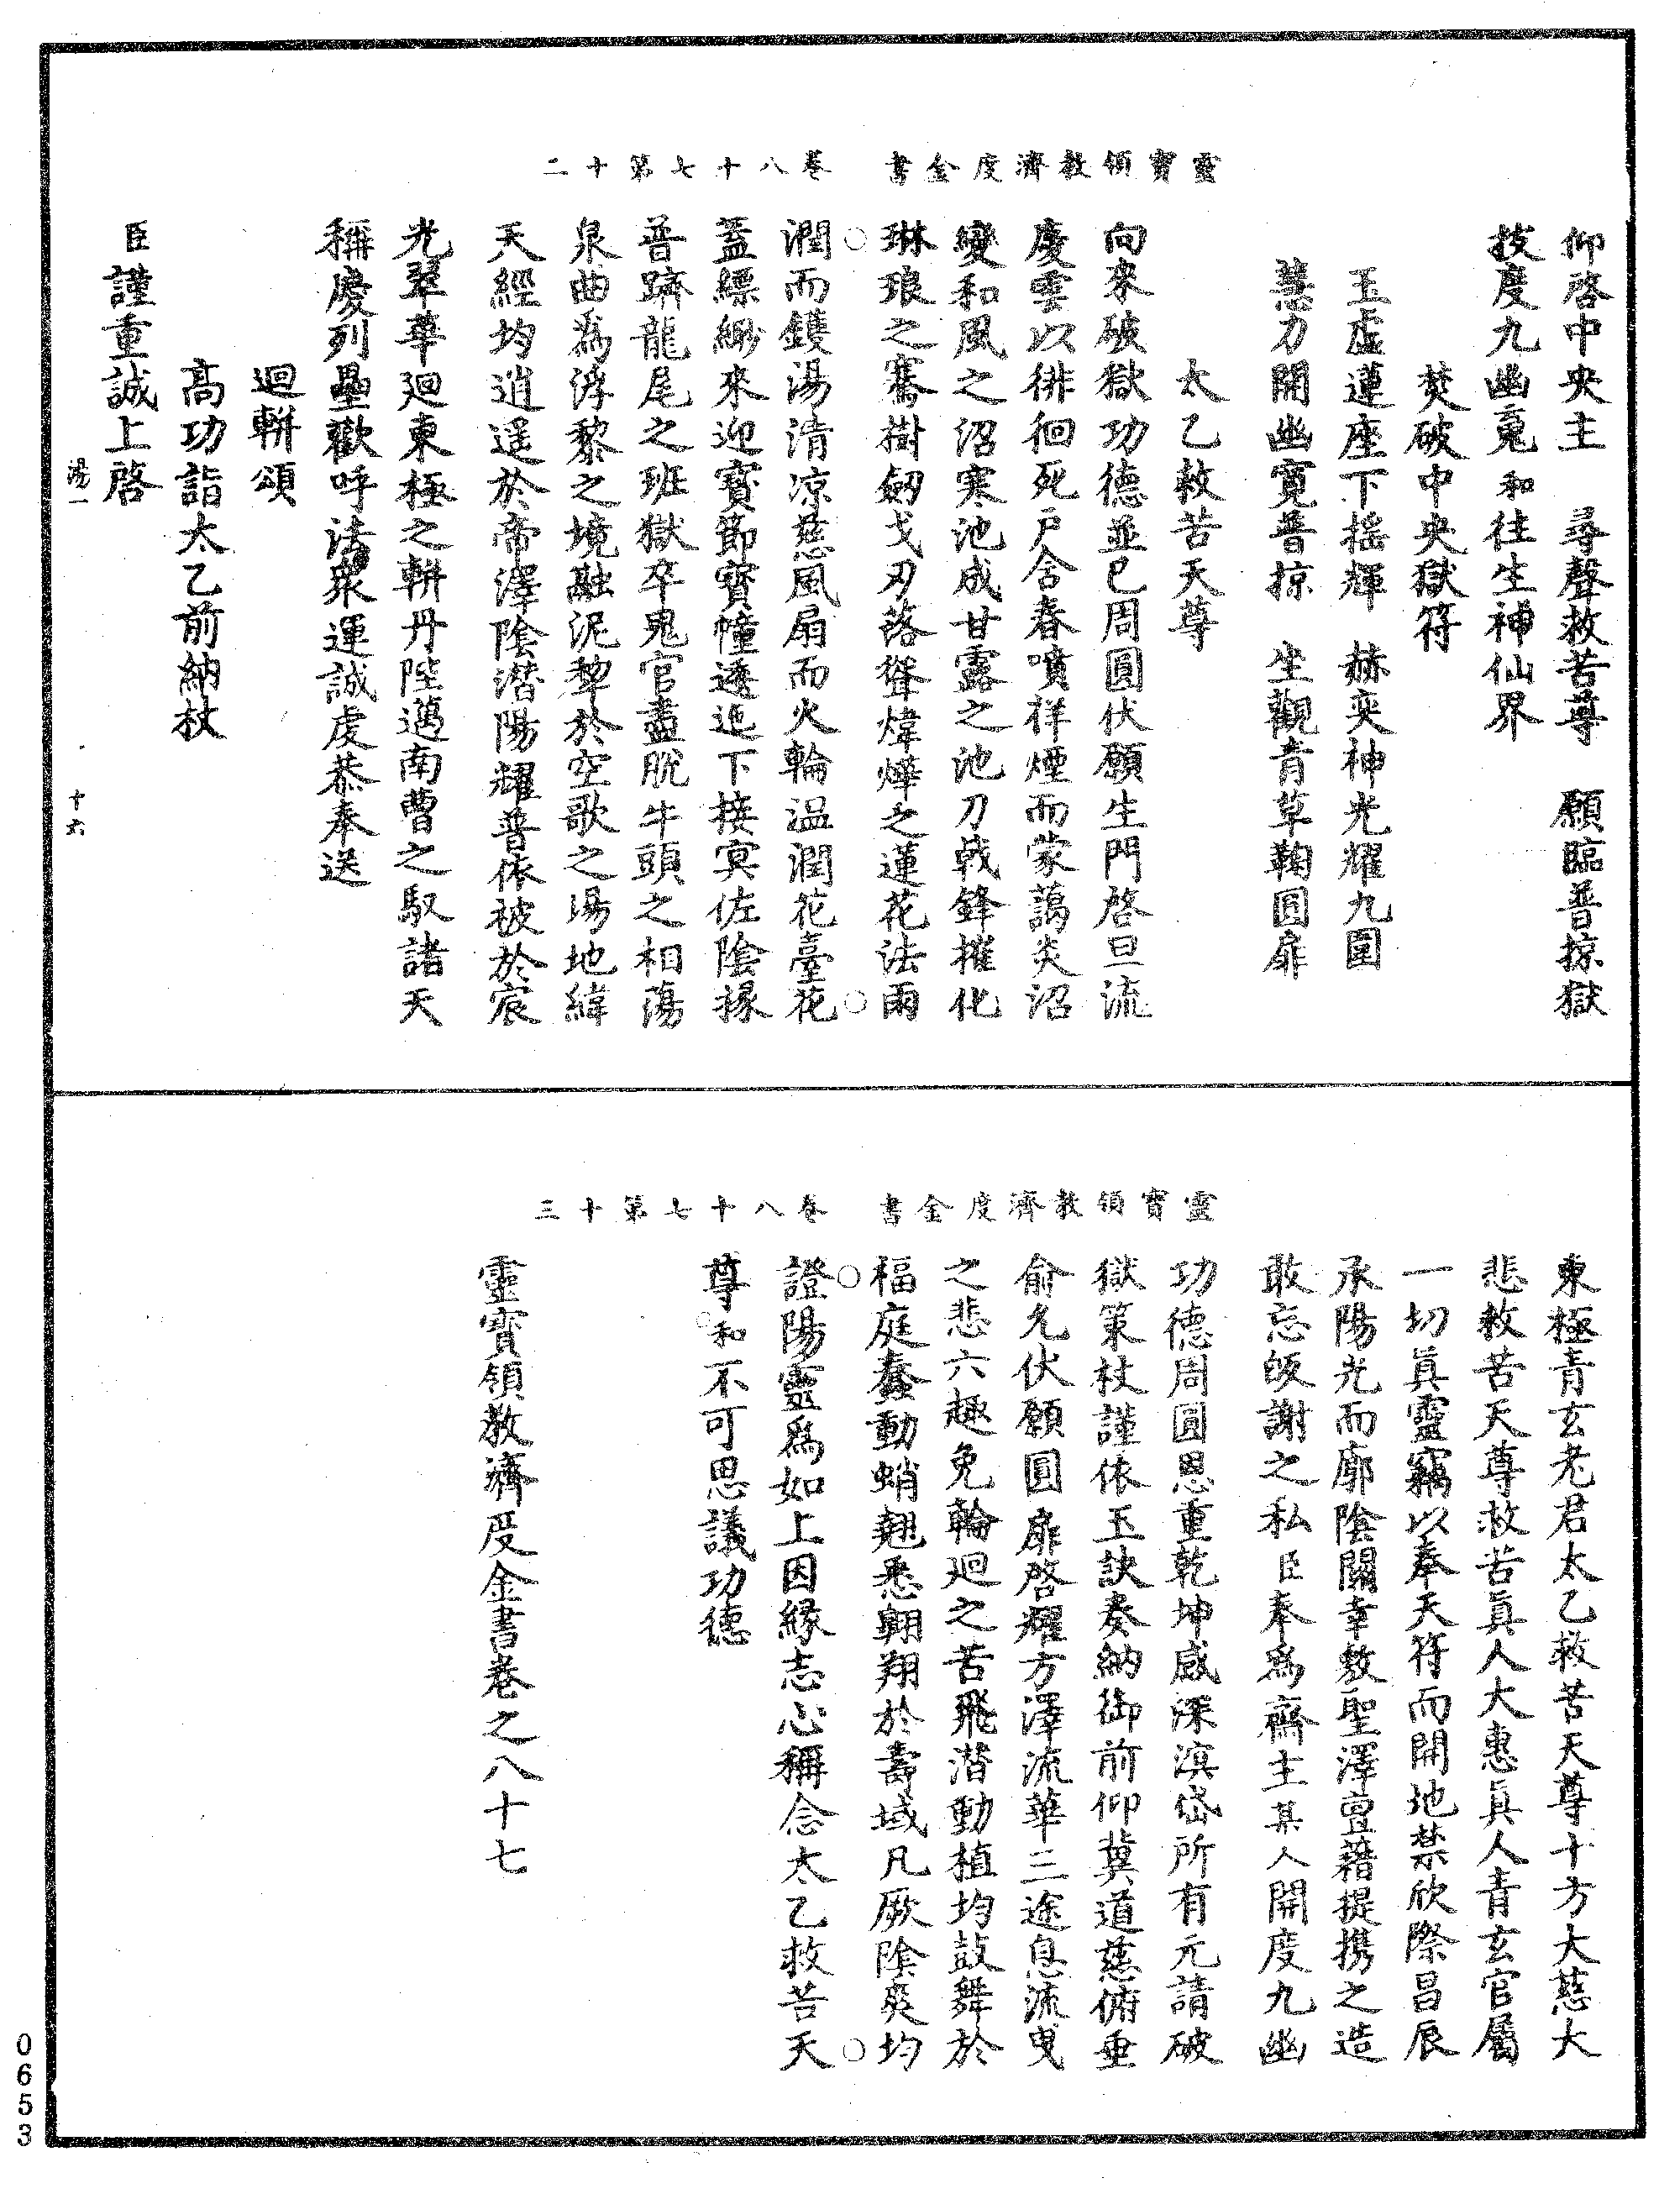 靈寶領教濟度金書　卷八十七第十二
仰啓中央主　尋聲救苦尊　願臨普掠獄
拔度九幽䰟和往生神仙界
焚破中央獄符
玉虛蓮座下搖輝　赫奕神光耀九圍
慧力開幽寬普掠　坐觀青草鞠圓扉
太乙救苦天尊
向來破獄功德並已周圓伏願生門啓旦流
慶雲以徘徊死戶含春噴祥煙而蒙藹炎沼
變和風之沼寒池成甘露之池刀戟鋒摧化
琳琅之騫樹劒戈刃落聳煒燁之蓮花法雨
潤而鑊湯清凉慈風扇而火輪温潤花臺花
蓋縹緲來迎寶節寶幢透迤下接冥佐陰掾
普躋龍尾之班獄卒鬼官盡脫牛頭之相蕩
泉曲爲浮黎之境融泥犂於空歌之場地緯
天經均逍遥於帝澤陰潜陽耀普依被於宸
光翠華廻東極之軿丹陛邁南曹之馭諸天
稱慶列壘歡呼法衆運誠虔恭奉送
迴軿頌
高功詣太乙前納杖
臣謹重誠上啓
湯一　十六
靈寶領教濟度金書　卷八十七第十三
東極青玄老君太乙救苦天尊十方大慈大
悲救苦天尊救苦眞人大惠眞人青玄官屬
一切眞靈竊以奉天符而開地禁欣際昌辰
承陽光而廓陰關幸敷聖澤亶藉提携之造
敢忘皈謝之私臣奉爲齋主某人開度九幽
功德周圓恩重乾坤感深溟岱所有元請破
獄策杖謹依玉訣奏納御前仰冀道慈俯垂
俞允伏願圓扉啓耀方澤流華三途息流曳
之悲六趣免輪廻之苦飛潜動植均鼓舞於
福庭蠢動蛸翹悉翺翔於壽域凡厥陰爽均
證陽靈爲如上因緣志心稱念太乙救苦天
尊和不可思議功德
靈寶領教濟度金書卷之八十七
0653